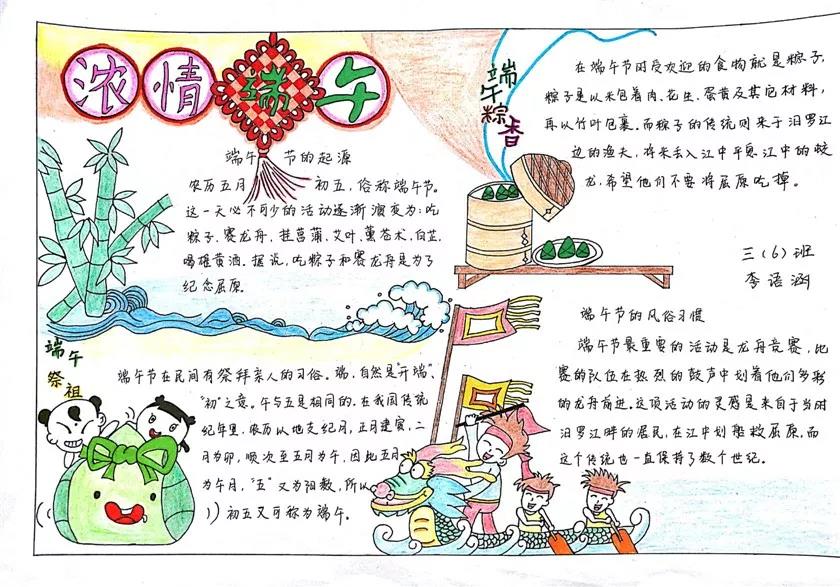 浓情端午
端午 节的起源
农历五月 初五，俗称端午节。
这一天必不可少的活动逐渐演变为：吃
粽子，赛龙舟，挂菖蒲、艾叶、薰苍术、白芷，
喝雄黄酒。据说，吃粽子和赛龙舟是为了
纪念屈原。
端午粽香
在端午节时受欢迎的食物就是粽子，
粽子是以米包着肉、花生、蛋黄及其它材料，
再以竹叶包裹。而粽子的传统则来于汨罗江
边的渔夫，将米丢入江中平息江中的蛟
龙，希望他们不要将屈原吃掉。
三（6）班
李语涵
端午
祭祖
端午节在民间有祭拜亲人的习俗。端，自然是“开端”、
“初”之意。午与五是相同的。在我国传统
纪年里，农历以地支纪月，正月建寅，二
月为卯，顺次至五月为午，因此五月
为午月，“五”又为阳数，所以
初五又可称为端午。
端午节的风俗习惯
端午节最重要的活动是龙舟竞赛，比
赛的队伍在热烈的鼓声中划着他们多彩
的龙舟前进。这项活动的灵感是来自于当时
汨罗江畔的居民，在江中划船救屈原，而
这个传统也一直保持了数个世纪。